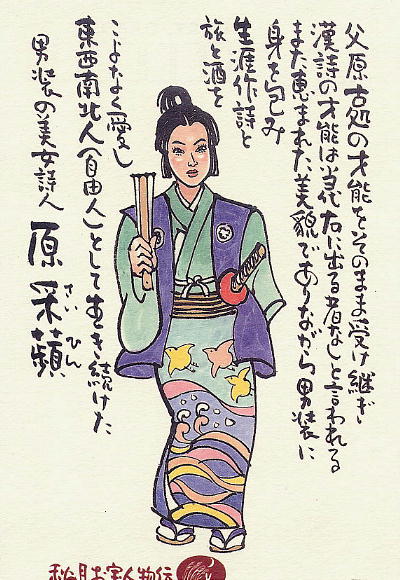 父原古処の才能をそのまま受け継ぎ
漢詩の才能は当代右に出る者なしと言われる
また恵まれた美貌でありながら男装に
身を包み
生涯作詩と
旅と酒を
こよなく愛し
東西南北人(自由人)として生き続けた
男装の美女詩人
原采蘋
さいひん
秋月お宝人物伝